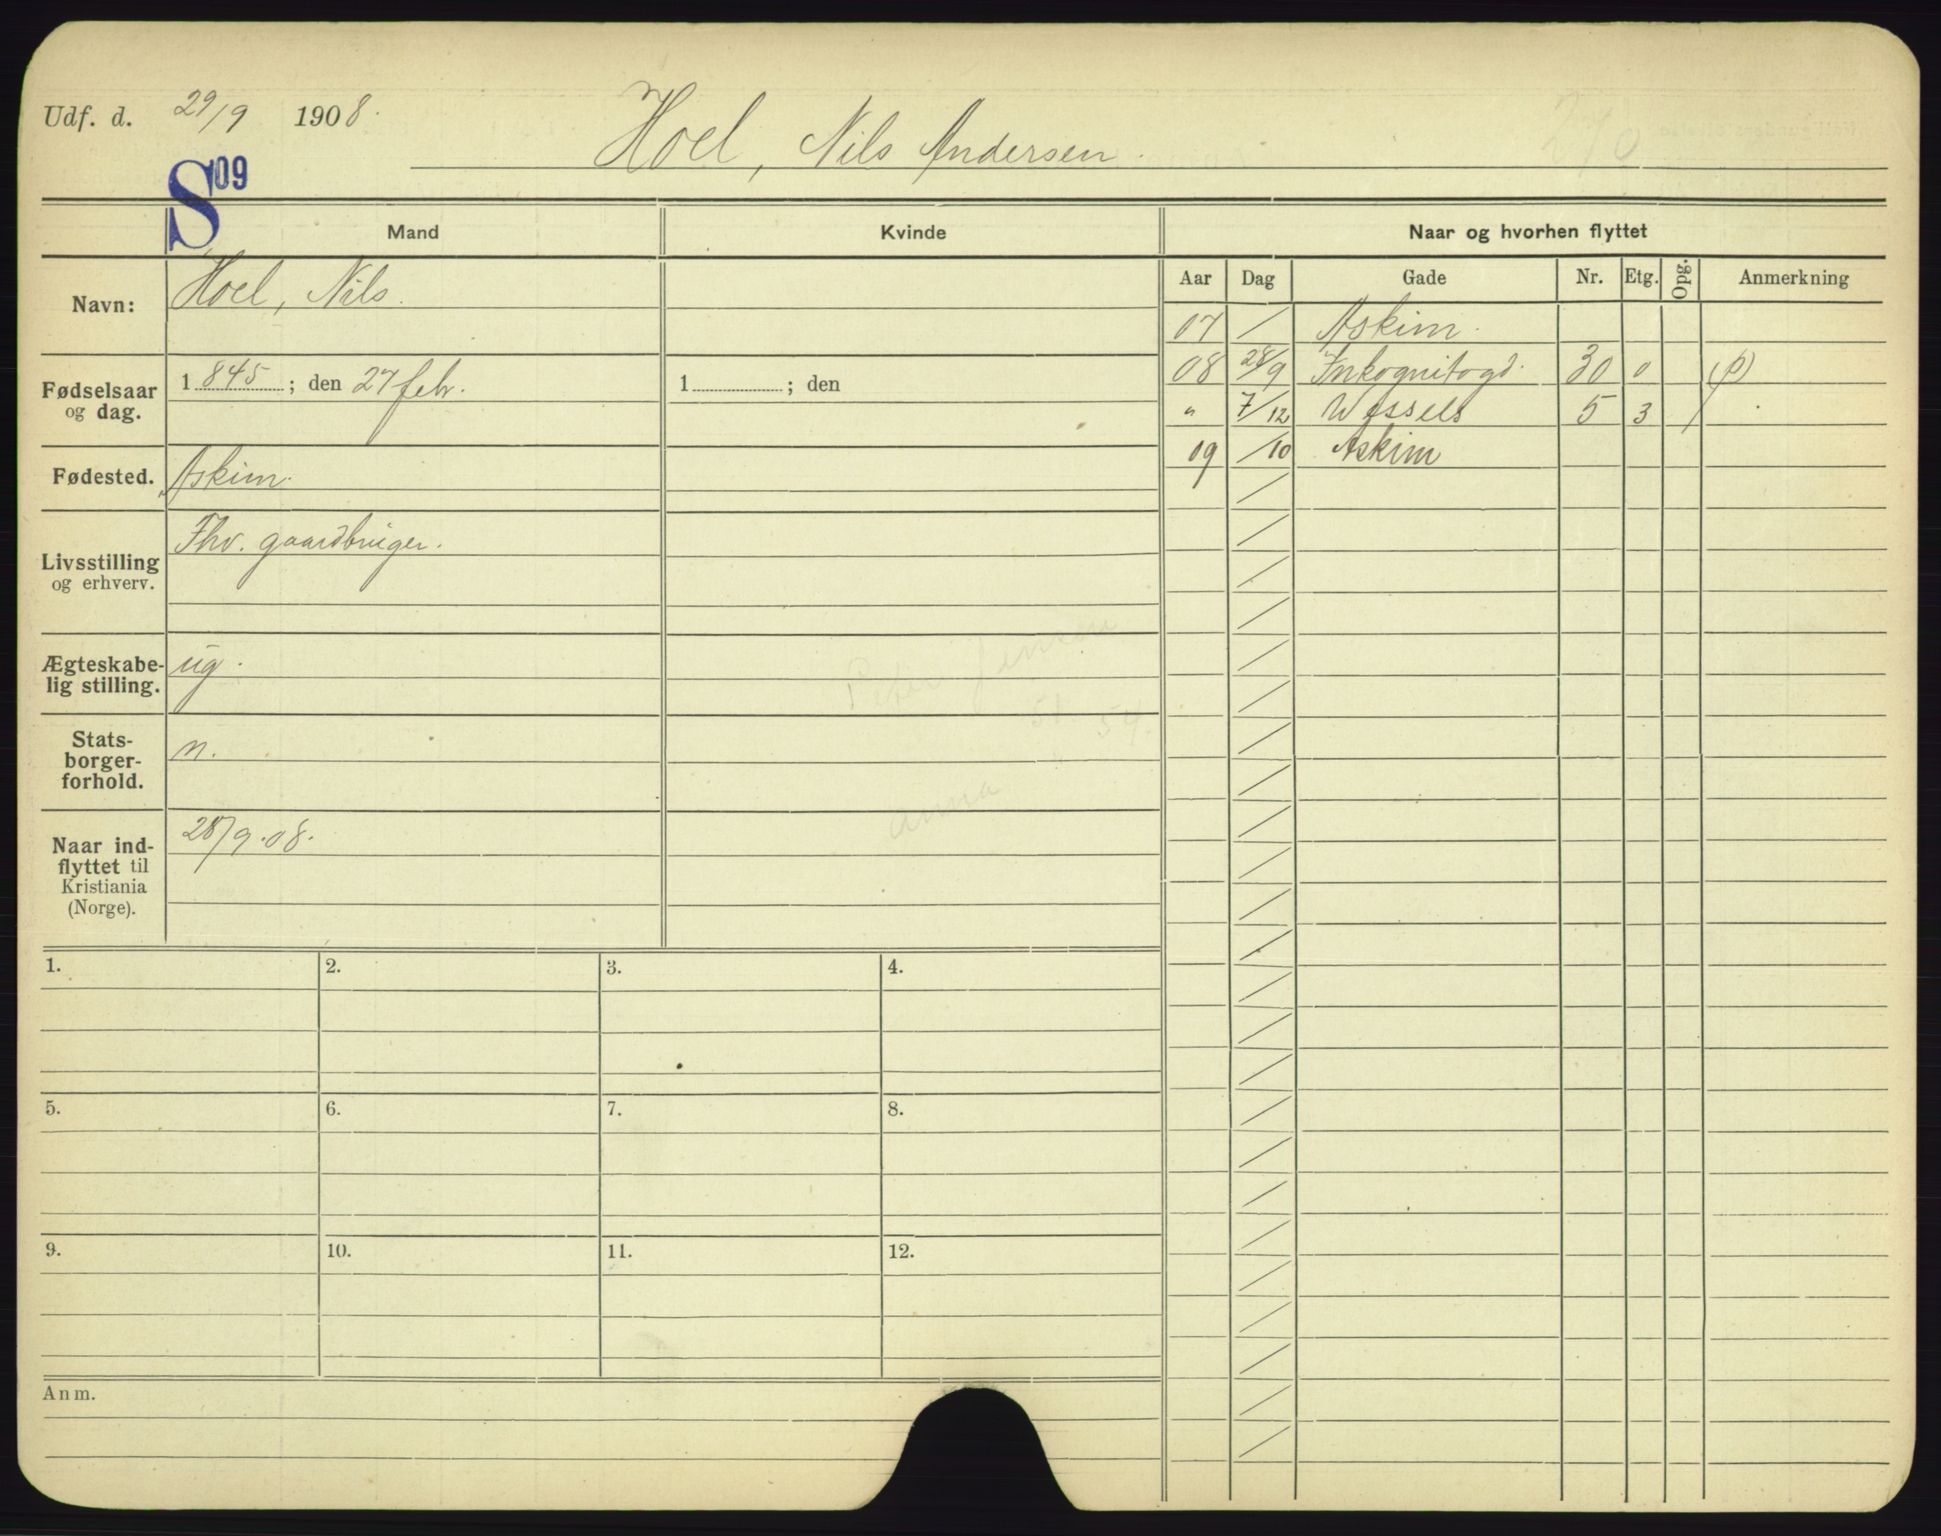 Udf. d. 29/9 1908.
Hoel, Nils Andersen.
S09
Mand
Kvinde
Naar og hvorhen flyttet
Aar Dag Gade Nr. Etg. Opg. Anmerkning
07 / Askim.
08 28/9 Inkognitogd. 30 0 (p)
" 7/12 Wessels 5 3 /
09 /10 Askim
Navn: Hoel, Nils.
Fødselsaar og dag. 1845; den 27 febr.
1 ; den
Fødested. Askim.
Livsstilling og erhverv. Fhv. gaardbruger.
Ægteskabe-
lig stilling. ug.
Stats-
borger-
forhold. n.
Naar ind-
flyttet til
Kristiania
(Norge). 28/9.08.
Peter Jensen
51 54.
anna
1. 2. 3. 4.
5. 6. 7. 8.
9. 10. 11. 12.
Anm.